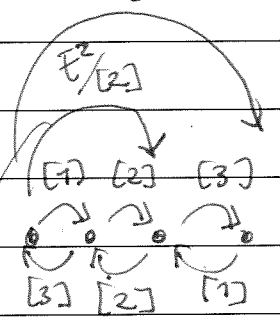 E²/[2]
[1] [2] [3]
[3] [2] [1]